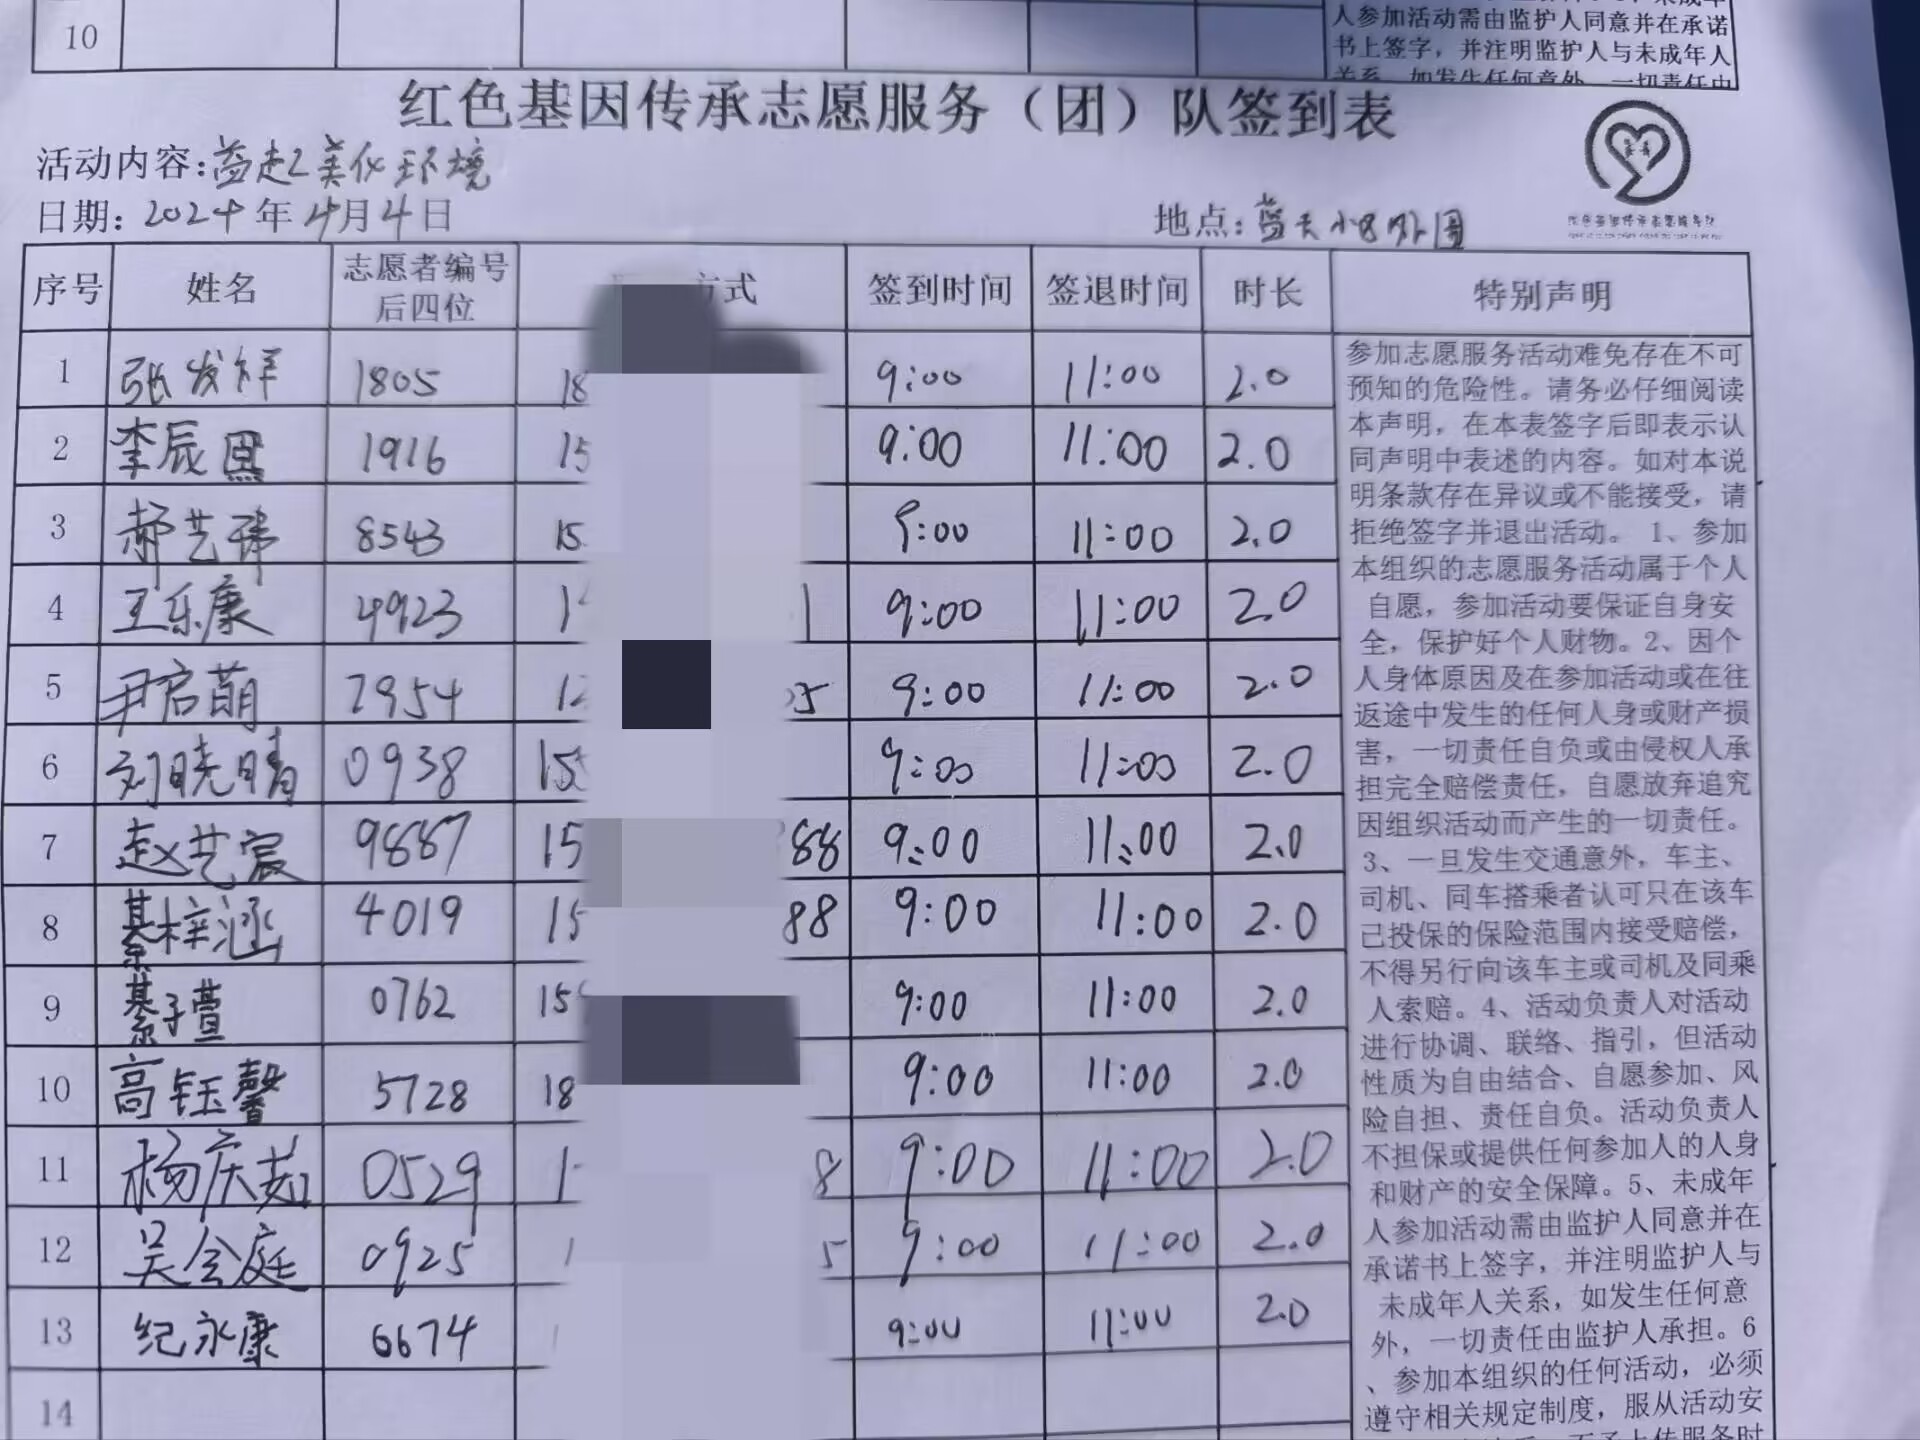 10
人参加活动需由监护人同意并在承诺
书上签字，并注明监护人与未成年人
关系，如发生任何意外，一切责任由
红色基因传承志愿服务（团）队签到表
活动内容：益起美化环境
日期：2024年4月4日
地点：蓝天小区外围
序号 姓名 志愿者编号后四位 方式 签到时间 签退时间 时长 特别声明
1 张发祥 1805 18 9:00 11:00 2.0
2 李辰 1916 15 9:00 11:00 2.0
3 郝艺 8543 15 9:00 11:00 2.0
4 王乐康 4923 1 1 9:00 11:00 2.0
5 尹启萌 7954 5 9:00 11:00 2.0
6 刘晓晴 0938 15 9:00 11:00 2.0
7 赵艺宸 9887 15 88 9:00 11:00 2.0
8 綦梓涵 4019 15 88 9:00 11:00 2.0
9 綦子萱 0762 15 9:00 11:00 2.0
10 高钰馨 5728 18 9:00 11:00 2.0
11 杨庆茹 0529 1 8 9:00 11:00 2.0
12 吴会庭 0925 1 5 9:00 11:00 2.0
13 纪永康 6674 9:00 11:00 2.0
14
参加志愿服务活动难免存在不可
预知的危险性。请务必仔细阅读
本声明，在本表签字后即表示认
同声明中表述的内容。如对本说
明条款存在异议或不能接受，请
拒绝签字并退出活动。 1、参加
本组织的志愿服务活动属于个人
自愿，参加活动要保证自身安
全，保护好个人财物。2、因个
人身体原因及在参加活动或在往
返途中发生的任何人身或财产损
害，一切责任自负或由侵权人承
担完全赔偿责任，自愿放弃追究
因组织活动而产生的一切责任。
3、一旦发生交通意外，车主、
司机、同车搭乘者认可只在该车
己投保的保险范围内接受赔偿，
不得另行向该车主或司机及同乘
人索赔。4、活动负责人对活动
进行协调、联络、指引，但活动
性质为自由结合、自愿参加、风
险自担、责任自负。活动负责人
不担保或提供任何参加人的人身
和财产的安全保障。5、未成年
人参加活动需由监护人同意并在
承诺书上签字，并注明监护人与
未成年人关系，如发生任何意
外，一切责任由监护人承担。6
、参加本组织的任何活动，必须
遵守相关规定制度，服从活动安